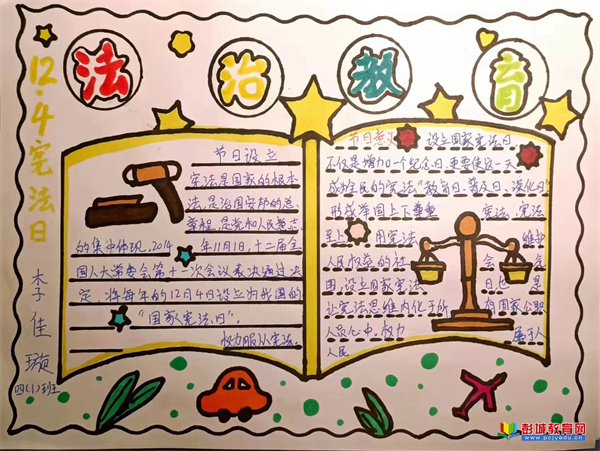 法治教育
12.4宪法日
李佳璇
四(1)班
节日设立
宪法是国家的根本
法,是治国安邦的总
章程,是党和人民意志
的集中体现.2014年11月1日,十二届全
国人大常委会第十一次会议表决通过决
定,将每年的12月4日设立为我国的
“国家宪法日”
权力服从宪法.
节日意义 设立国家宪法日,
不仅是增加0一个纪念日,更要使这一天
成 民的宪法“教育日、普及日、深化日
形成举国上下尊重 宪法、宪法
至上 用宪法 维护
人民权益的社 会 氛
围.设立国家宪法 日,也 是
让宪法思维内化于所 有国家公职
人员心中.权力 属于人
人民
彭城教育网
www.pcjyedu.cn